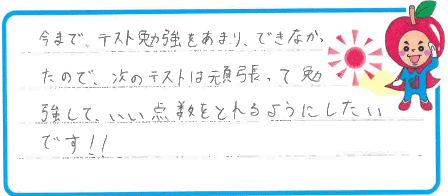 今まで、テスト勉強をあまり、できなかっ
たので、次のテストは頑張って勉
強して、いい点数をとれるようにしたい
です!!